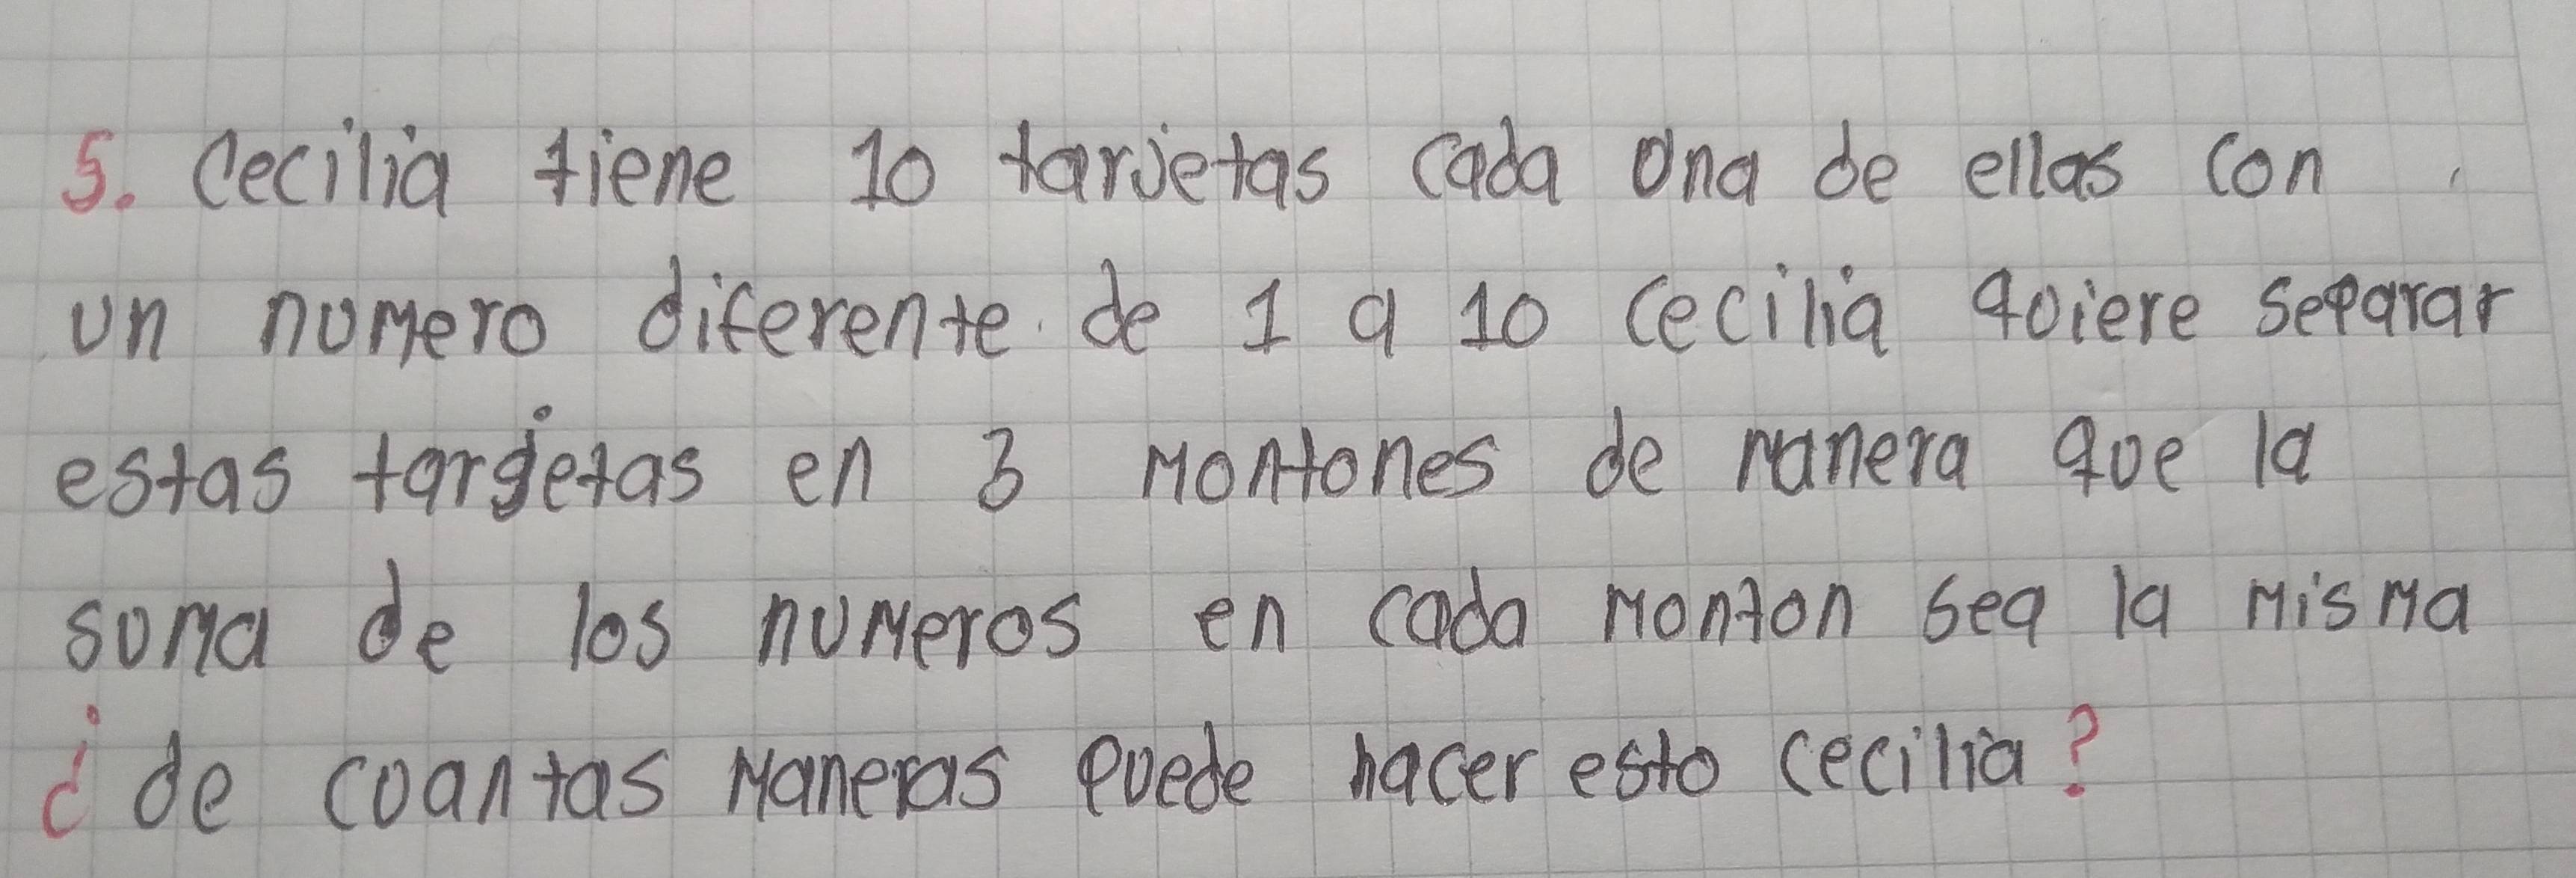 5. Cecilia tiene 10 tarjetas cada una de ellas con
un numero diferente de 1 a 10 Cecilia quiere separar
estas targetas en 3 montones de manera que la
suma de los numeros en cada monton sea la misma
¿de cuantas maneras puede hacer esto cecilia?